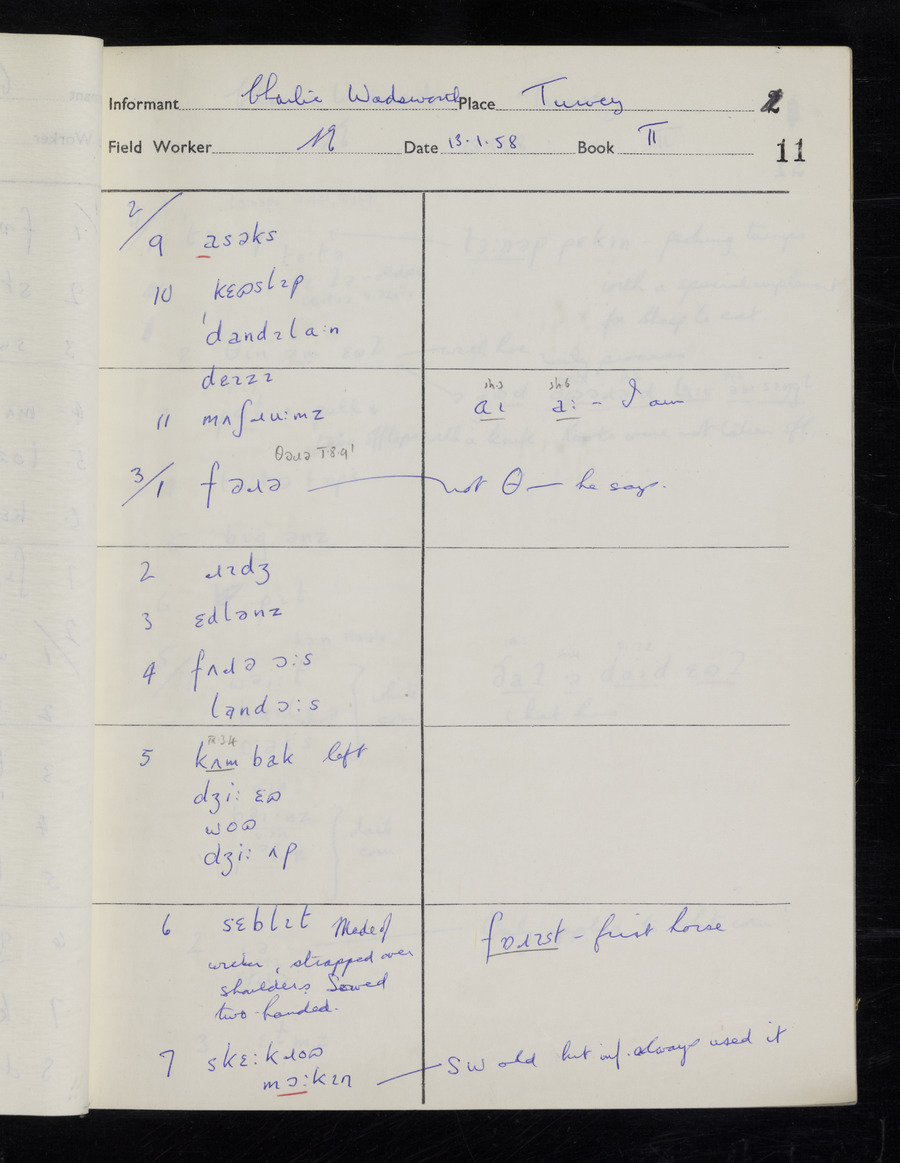 Informant Charlie Wadsworth Place Turvey 2
Field Worker Date 13.1.58 Book II 11
2/
9 asəks
10 kɛʊslɪp
'dandɪlaːn
deɪzɪ
11 mʌʃɹuːmz
sh3 sh6
aɪ aː – I am
θəɹə T.8.9'
3/1 fəɹə not θ – he says.
2 ɹɪdʒ
3 ɛdlənz
4 fʌɹə ɔːs
land ɔːs
5 kʌm bak left
dʒiː ɛʊ
woʊ
dʒiː ʌp
6 sɛblɪt Made of
wicker, strapped over
shoulders. Sowed
two-handed.
fɒɹɪst – first horse
7 skɛːkɹoʊ
mɔːkɪn SW old but inf. always used it